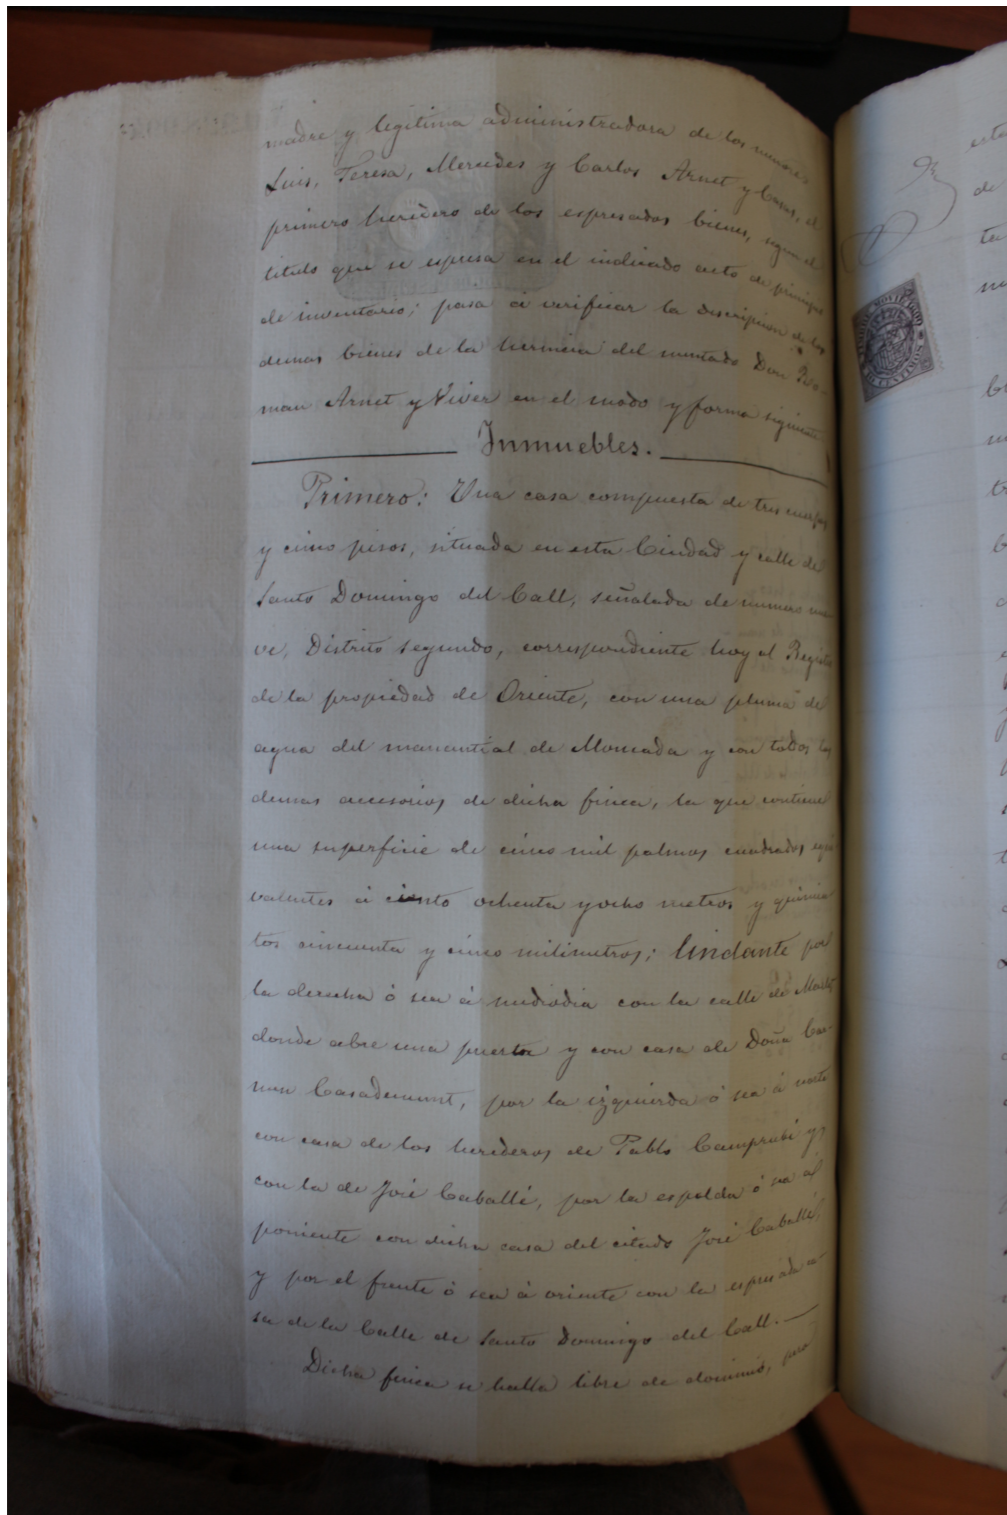 madre y legitima administradora de los menores
Luis, Teresa, Mercedes y Carlos Arnet y Casas, el
primero heredero de los espresados bienes, segun el
titulo que se espresa en el indicado auto de principio
de inventario; pasa á verificar la descripcion de los
demas bienes de la herencia del mentado Don Ro-
man Arnet y Viver en el modo y forma siguiente
Inmuebles.
Primero: Una casa compuesta de tres cuerpos
y cinco pisos, situada en esta Ciudad y calle de
Santo Domingo del Call, señalada de numero nue
ve, Distrito segundo, correspondiente hoy al Registro
de la propiedad de Oriente, con una pluma de
agua del manantial de Moncada y con todos los
demas accesorios de dicha finca, la que contiene
una superficie de cinco mil palmos cuadrados equi
valentes á ciento ochenta y ocho metros y quinien
tos cincuenta y cinco milimetros; lindante por
la derecha ó sea á mediodia con la calle de Marlet
donde abre una puerta y con casa de Doña Car-
men Casademunt, por la izquierda ó sea á norte
con casa de los herederos de Pablo Camprubí y
con la de José Caballé, por la espalda ó sea á
poniente con dicha casa del citado José Caballé,
y por el frente ó sea á oriente con la espresada ca-
sa de la Calle de Santo Domingo del Call.—
Dicha finca se halla libre de dominio, pero